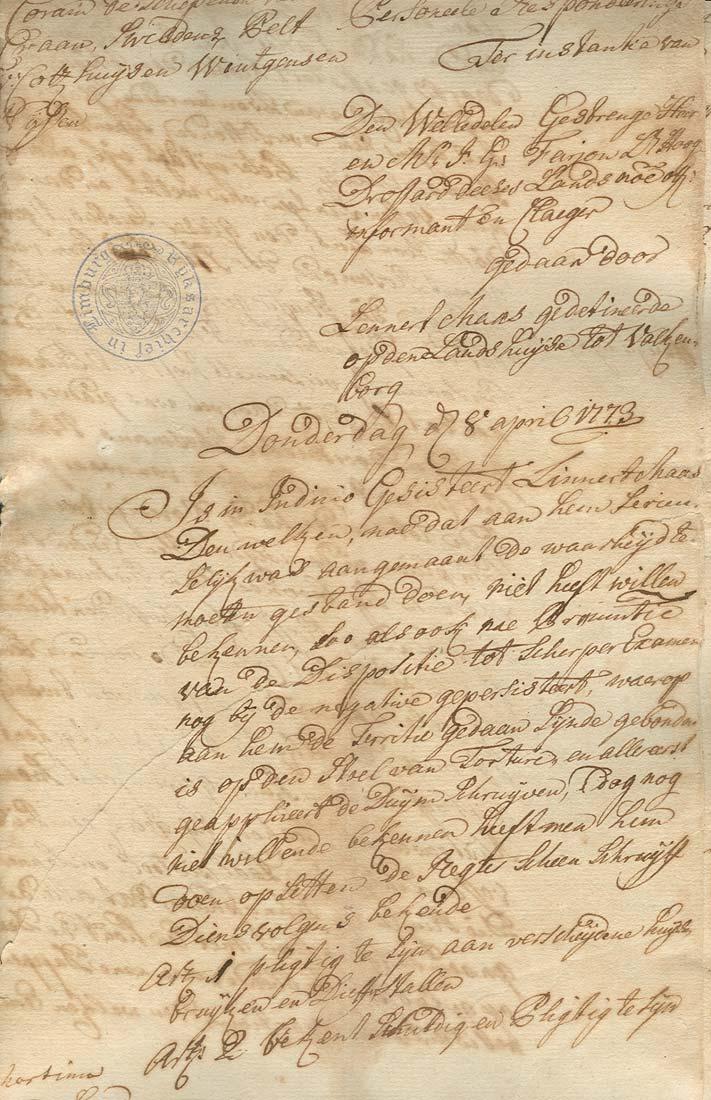 Coram de Schepenen
Craan, Sweldens, Pelt
Cotzhuijsen Wintgensen
Pijpen
Personeele Responderinge
Ter instantie van
Den WelEdelen Gestrenge Heer
en Mr. J. G. Farjon L Hoog
Drossard deeses Lands noe off:
informant en Claeger
gedaan door
Lennert Maas gedetineerde
op den Landshuijse tot Valken
borg
Donderdag d 8e april 1773
Is in Judicio Gesisteert Linnert Maas
Den welken, naedat aan hem Serieu
selijk was aangemaant de waarheijd te
moeten gestand doen, niet heeft willen
bekennen, soo als ook nae Pronuntie
van de Dispositie tot Scherper Examen
nog bij de negative gepersisteert, waerop
aan hem de Territie gedaan Sijnde gebonden
is op den Stoel van Torture, en alleerst
geappliceert de Duijm Schruijven, dog nog
niet willende bekennen heeft men hem
doen opsetten de Regte Scheen Schruijff
Diensvolgens bekende
Art 1 pligtig te Sijn aan verscheijdene huijs
bruijken en Dieffstallen
Art. 2 bekent Schuldig en Pligtig te sijn
Rijksarchief in Limburg